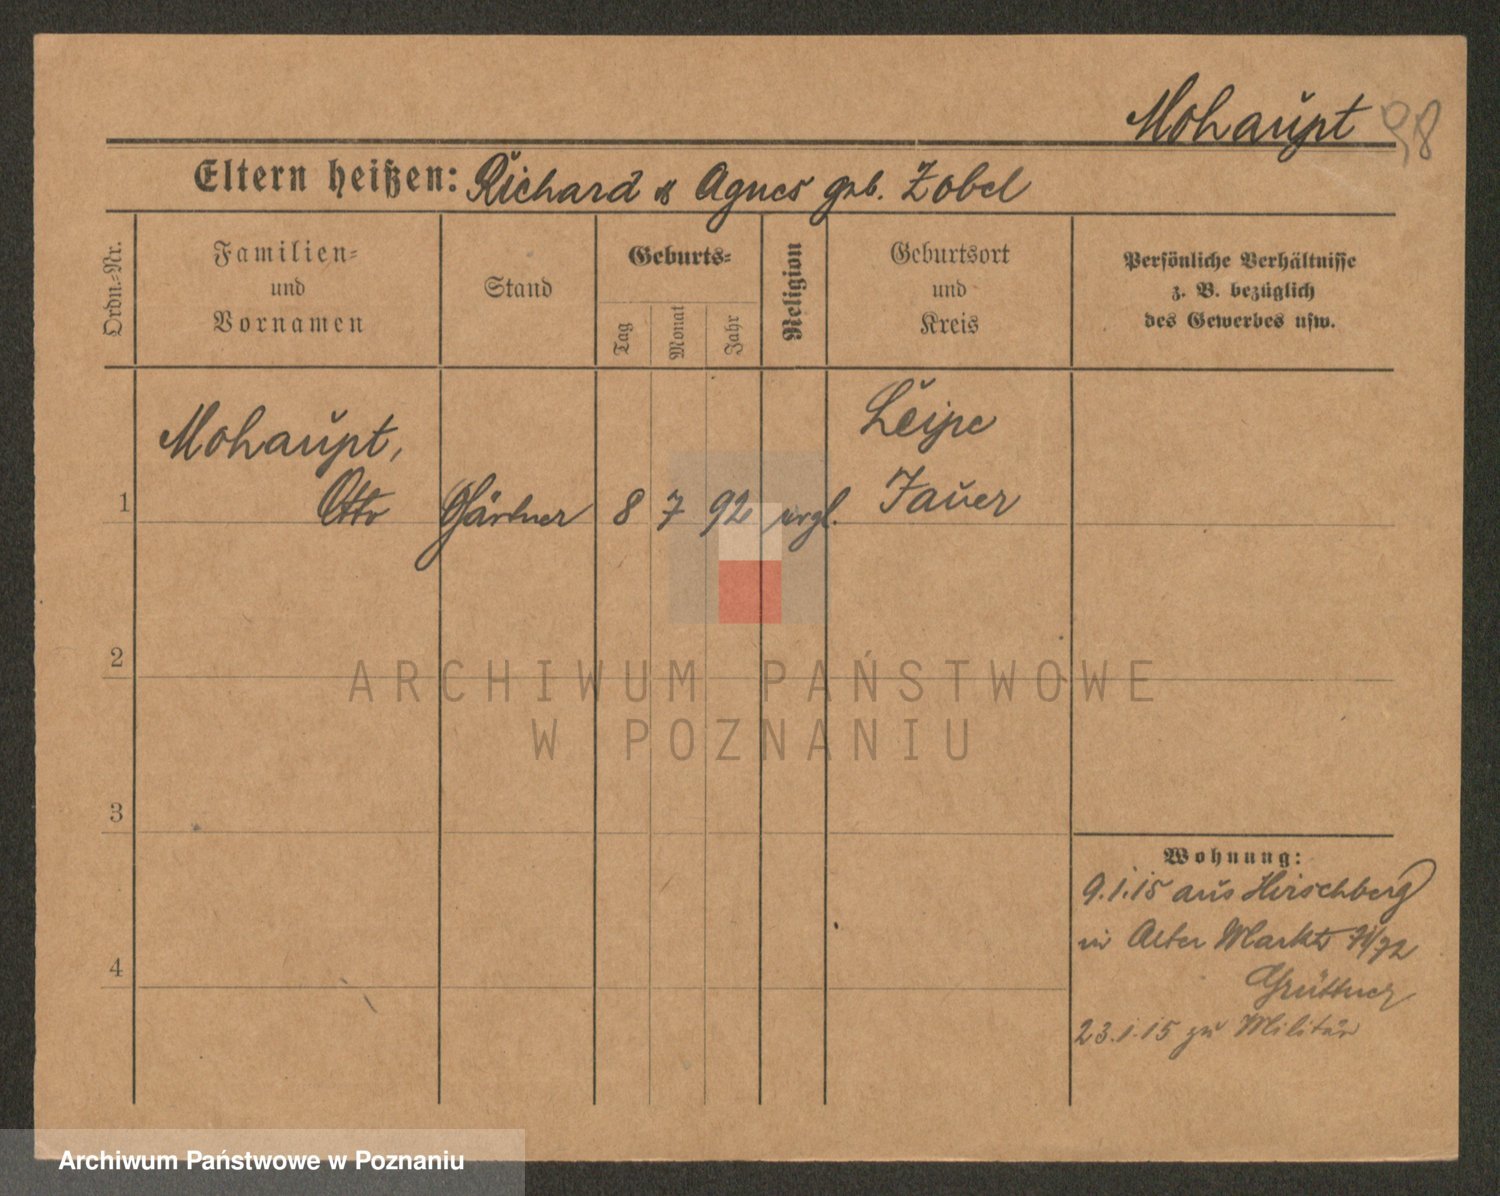 Mohaupt 98
Eltern heißen: Richard & Agnes geb. Zobel
Ordn.-Nr.
Familien-
und
Vornamen
Stand
Geburts-
Tag
Monat
Jahr
Religion
Geburtsort
und
Kreis
Persönliche Verhältnisse
z. B. bezüglich
des Gewerbes usw.
Mohaupt,
Leipe
1 Otto Gärtner 8 7 92 evgl. Jauer
2
3
4
Wohnung:
9.1.15 aus Hirschberg
in Alter Markt 71/72
Grüttner
23.1.15 zu Militär
ARCHIWUM PAŃSTWOWE
W POZNANIU
Archiwum Państwowe w Poznaniu